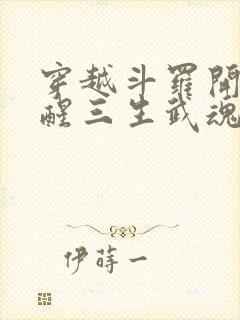 穿越斗羅開
醒三生武魂
伊蒔一